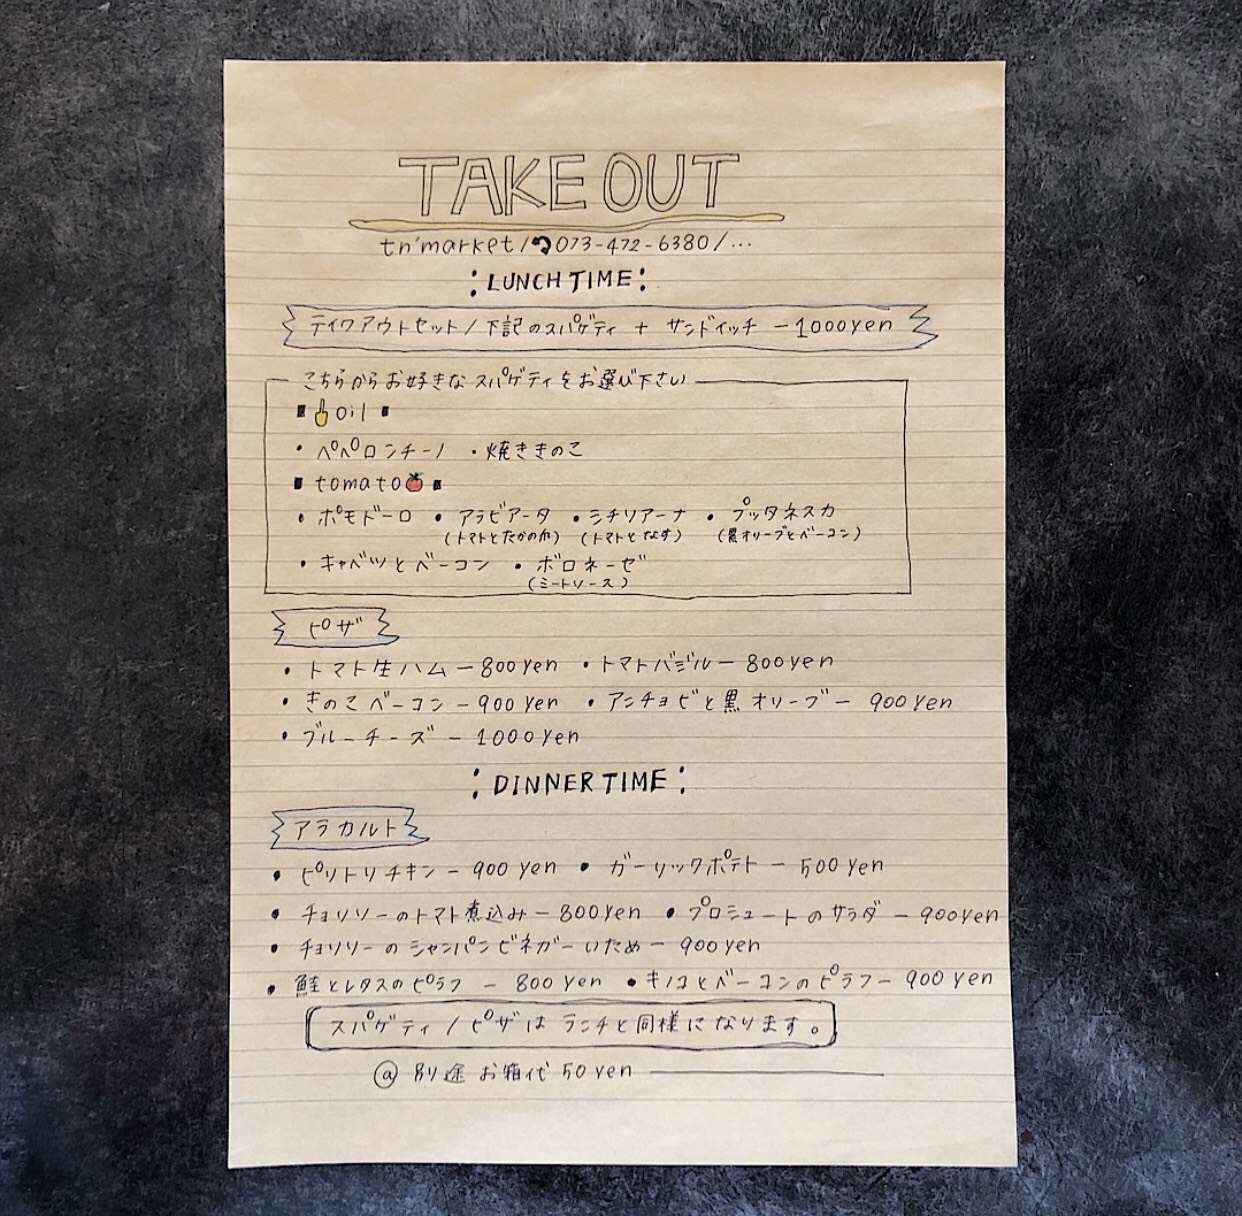 TAKE OUT
tn'market/073-472-6380/...
:LUNCH TIME:
テイクアウトセット/下記のスパゲティ + サンドイッチ ー1000yen
こちらからお好きなスパゲティをお選び下さい
■oil■
・ペペロンチーノ ・焼ききのこ
■tomato■
・ポモドーロ ・アラビアータ ・シチリアーナ ・プッタネスカ
(トマトとたかの爪) (トマトとなす) (黒オリーブとベーコン)
・キャベツとベーコン ・ボロネーゼ
(ミートソース)
ピザ
・トマト生ハムー800yen ・トマトバジルー800yen
・きのこベーコンー900yen ・アンチョビと黒オリーブー 900yen
・ブルーチーズ ー1000yen
:DINNER TIME:
アラカルト
・ピリトリチキンー900yen ・ガーリックポテトー500yen
・チョリソーのトマト煮込みー800yen ・プロシュートのサラダー900yen
・チョリソーのシャンパンビネガーいためー 900yen
・鮭とレタスのピラフ ー 800yen ・キノコとベーコンのピラフー900yen
スパゲティ/ピザはランチと同様になります。
@別途お箱代50yen